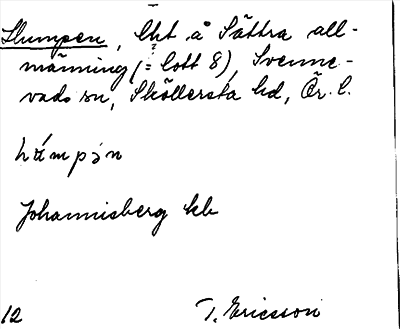 Slumpen, lht å Sättra all-
männing (= lott 8), Svenne-
vads sn, Sköllersta hd, Ör. l.
Johannisberg kb
12 T. Ericsson